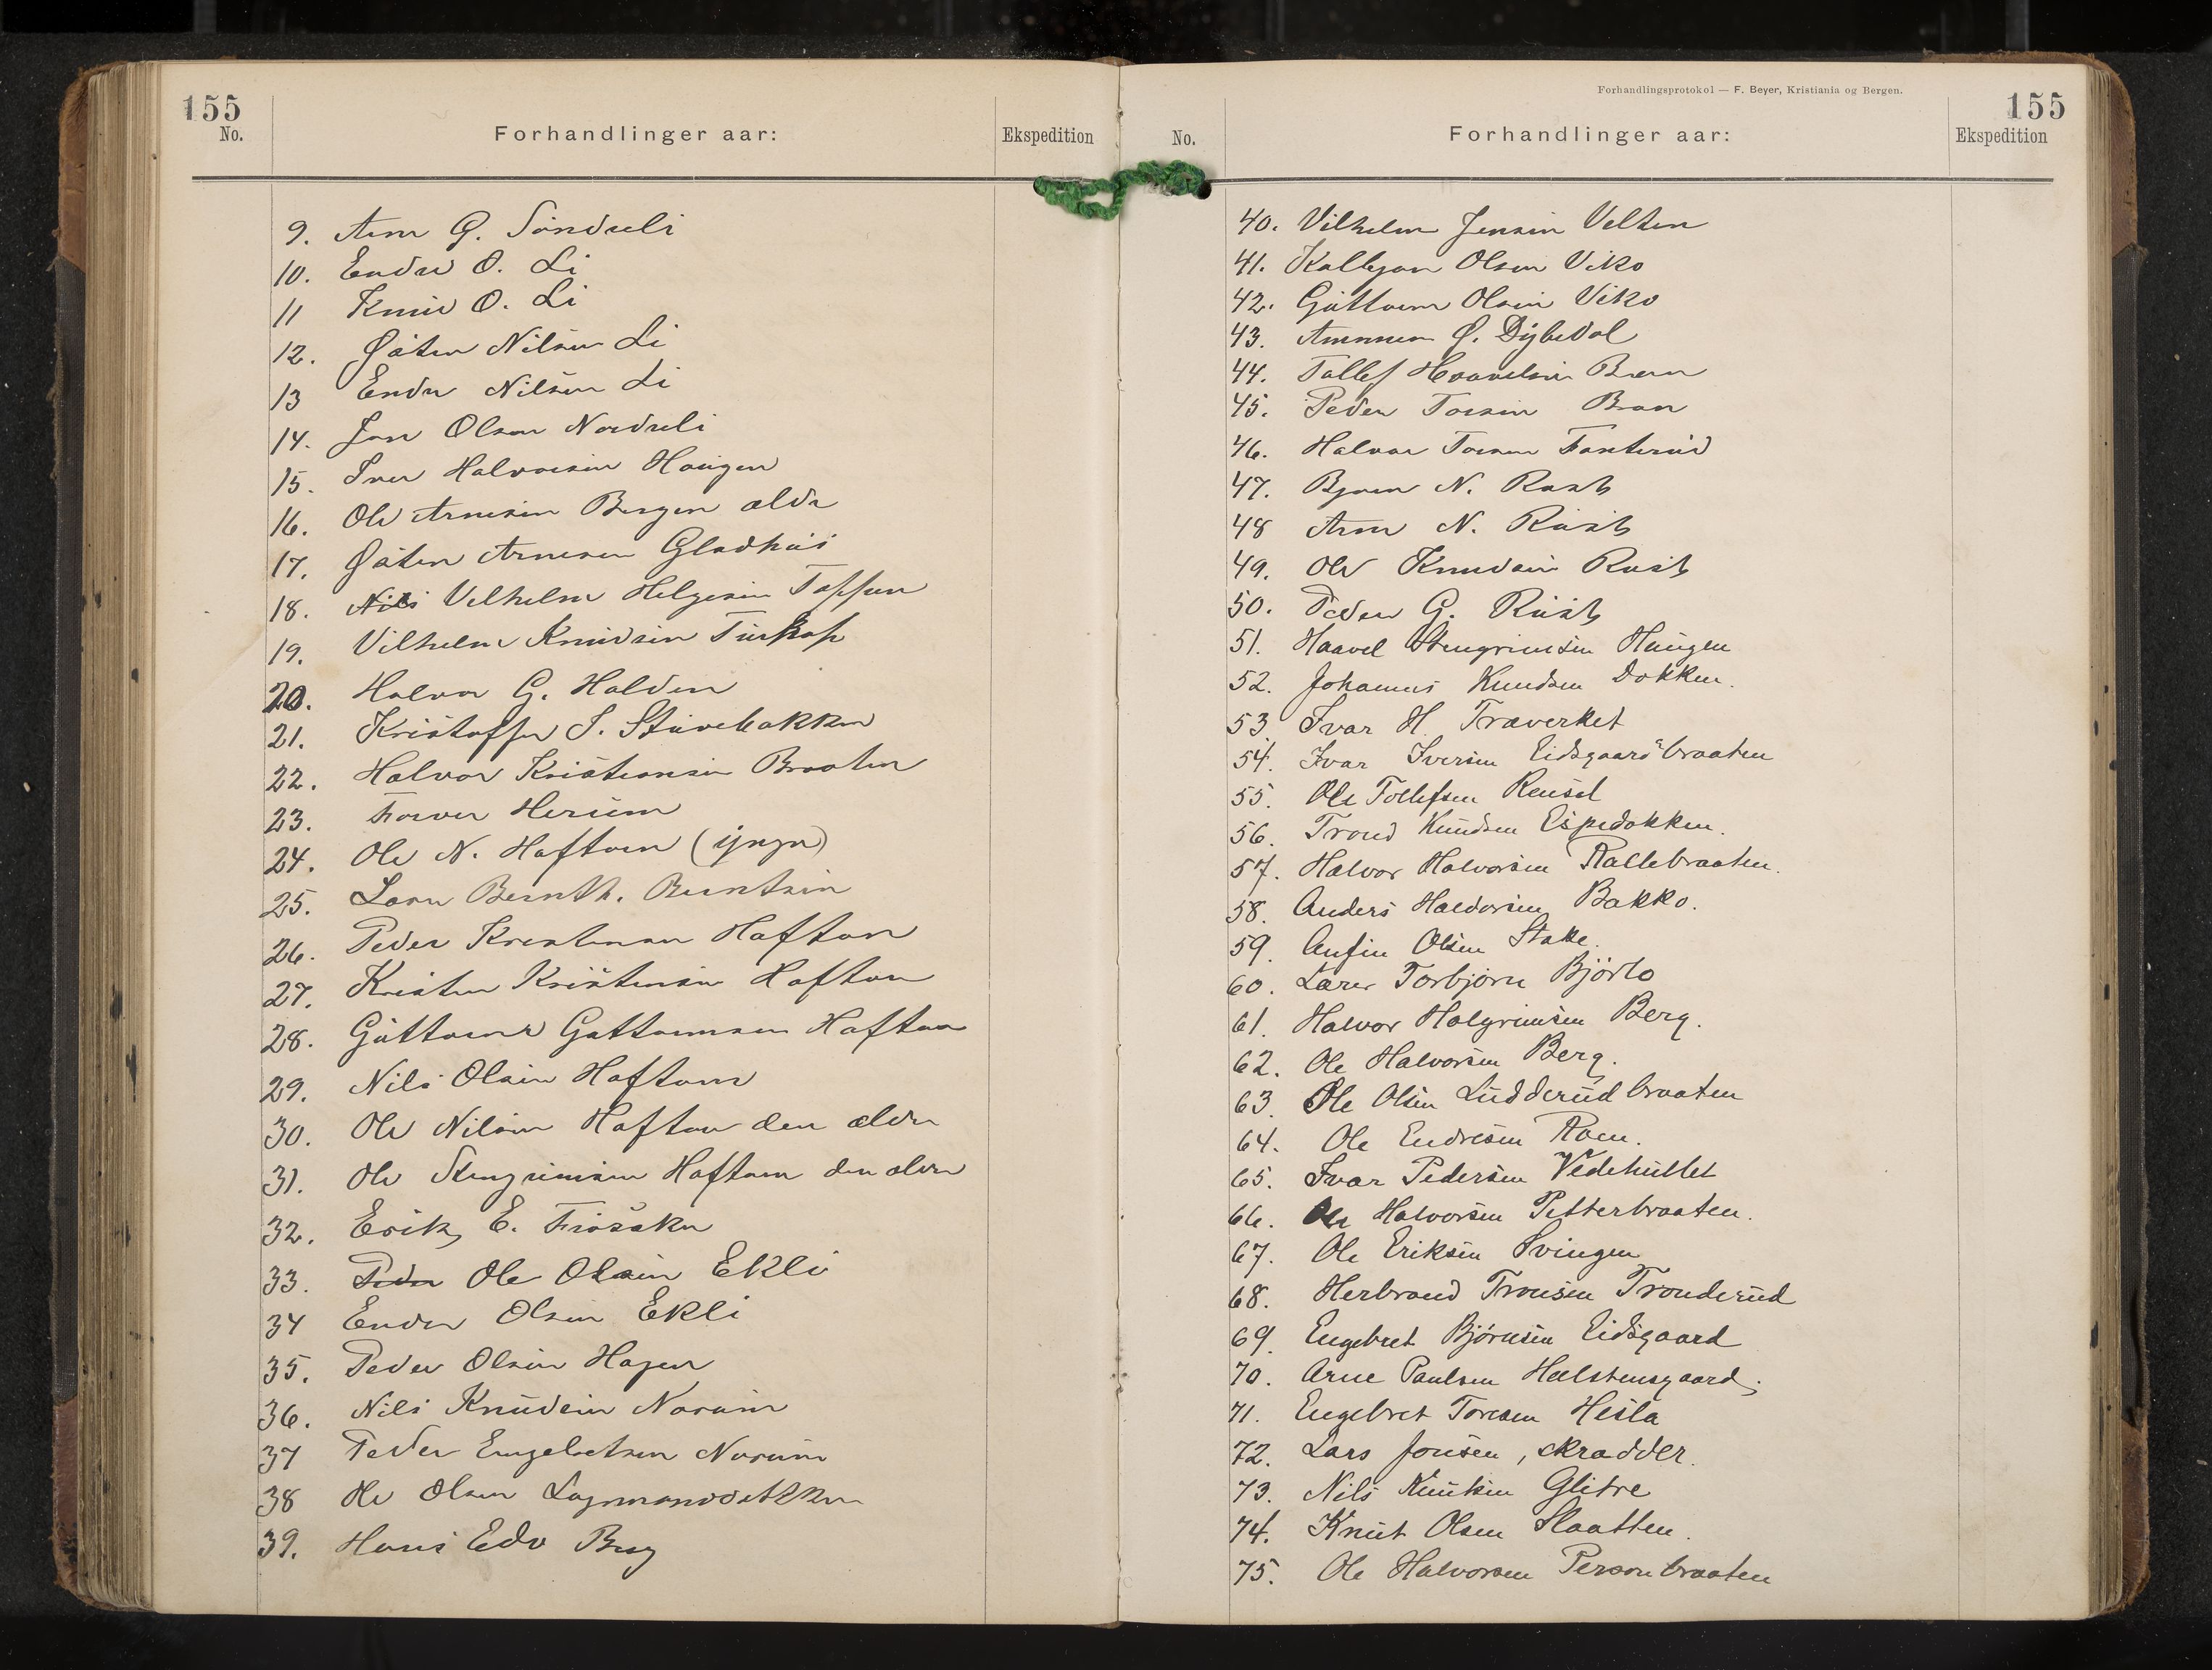 155
No.
Forhandlinger aar:
Ekspedition
9. Arne G. Söndreli
10. Endre O. Li
11 Knud O. Li
12. Østen Nilsen Li
13 Endre Nilsen Li
14. Jon Olsen Nordreli
15. Iver Halvorsen Haugen
16. Ole Arnesen Bergen ældr
17. Østen Arnesen Gladhus
18. Nils Vilhelm Helgesen
19. Vilhelm Knudsen
20. Halvor G. Halden
21. Kristoffer S. Stuvebakken
22. Halvor Kristiansen Braaten
23. Torver Herum
24. Ole N. Haftorn (yngr)
25. Bernth. Berntsen
26. Peder Kristensen Haftorn
27. Kristen Kristensen Haftorn
28. Guttorm Guttormsen Haftorn
29. Nils Olsen Haftorn
30. Ole Nilsen Haftorn den ældre
31. Ole Stengrimsen Haftorn den ældre
32. Erik E. Frøsaker
33. Peder Ole Olsen Ekli
34 Endre Olsen Ekli
35. Peder Olsen Hagen
36. Nils Knudsen Norum
37 Peder Engebretsen Norum
38 Ole Olsen
39. Hans Edv Berg
Forhandlingsprotokol — F. Beyer, Kristiania og Bergen.
155
No.
Forhandlinger aar:
Ekspedition
40. Vilhelm Jensen Velten
41. Kolbjørn Olsen Viko
42. Guttorm Olsen Viko
43. Ammun Ø. Dybedal
44. Tollef Haavelsen Bræn
45. Peder Torsen Bræn
46. Halvor Torsen Fonterud
47. Bjørn N. Rust
48 Arne N. Rust
49. Ole Knudsen Rust
50. Peder G. Rust
51. Haavel Stengrimsen Haugen
52. Johannes Knudsen Dokken.
53 Ivar H. Træverket
54. Ivar Iversen Eidsgaardsbraaten
55. Ole Tollefsen Reusel
56. Trond Knudsen Espedokken.
57. Halvor Halvorsen Rallebraaten.
58. Anders Haldorsen Bakko.
59. Anfin Olsen Stake.
60. Lærer Torbjørn Bjørlo
61. Halvor Halgrimsen Berg.
62. Ole Halvorsen Berg.
63. Ole Olsen Ludderudbraaten
64. Ole Endresen Roen.
65. Ivar Pedersen Vedehullet
66. Ole Halvorsen Petterbraaten.
67. Ole Eriksen Svingen
68. Herbrand Tronsen Tronderud
69. Engebret Bjørnsen Eidsgaard
70. Arne Paulsen Halstensgaard.
71. Engebret Toresen Hesla
72. Lars Jonsen, skrædder.
73. Nils Knutsen Glitre
74. Knut Olsen Slaatten.
75. Ole Halvorsen Personbraaten